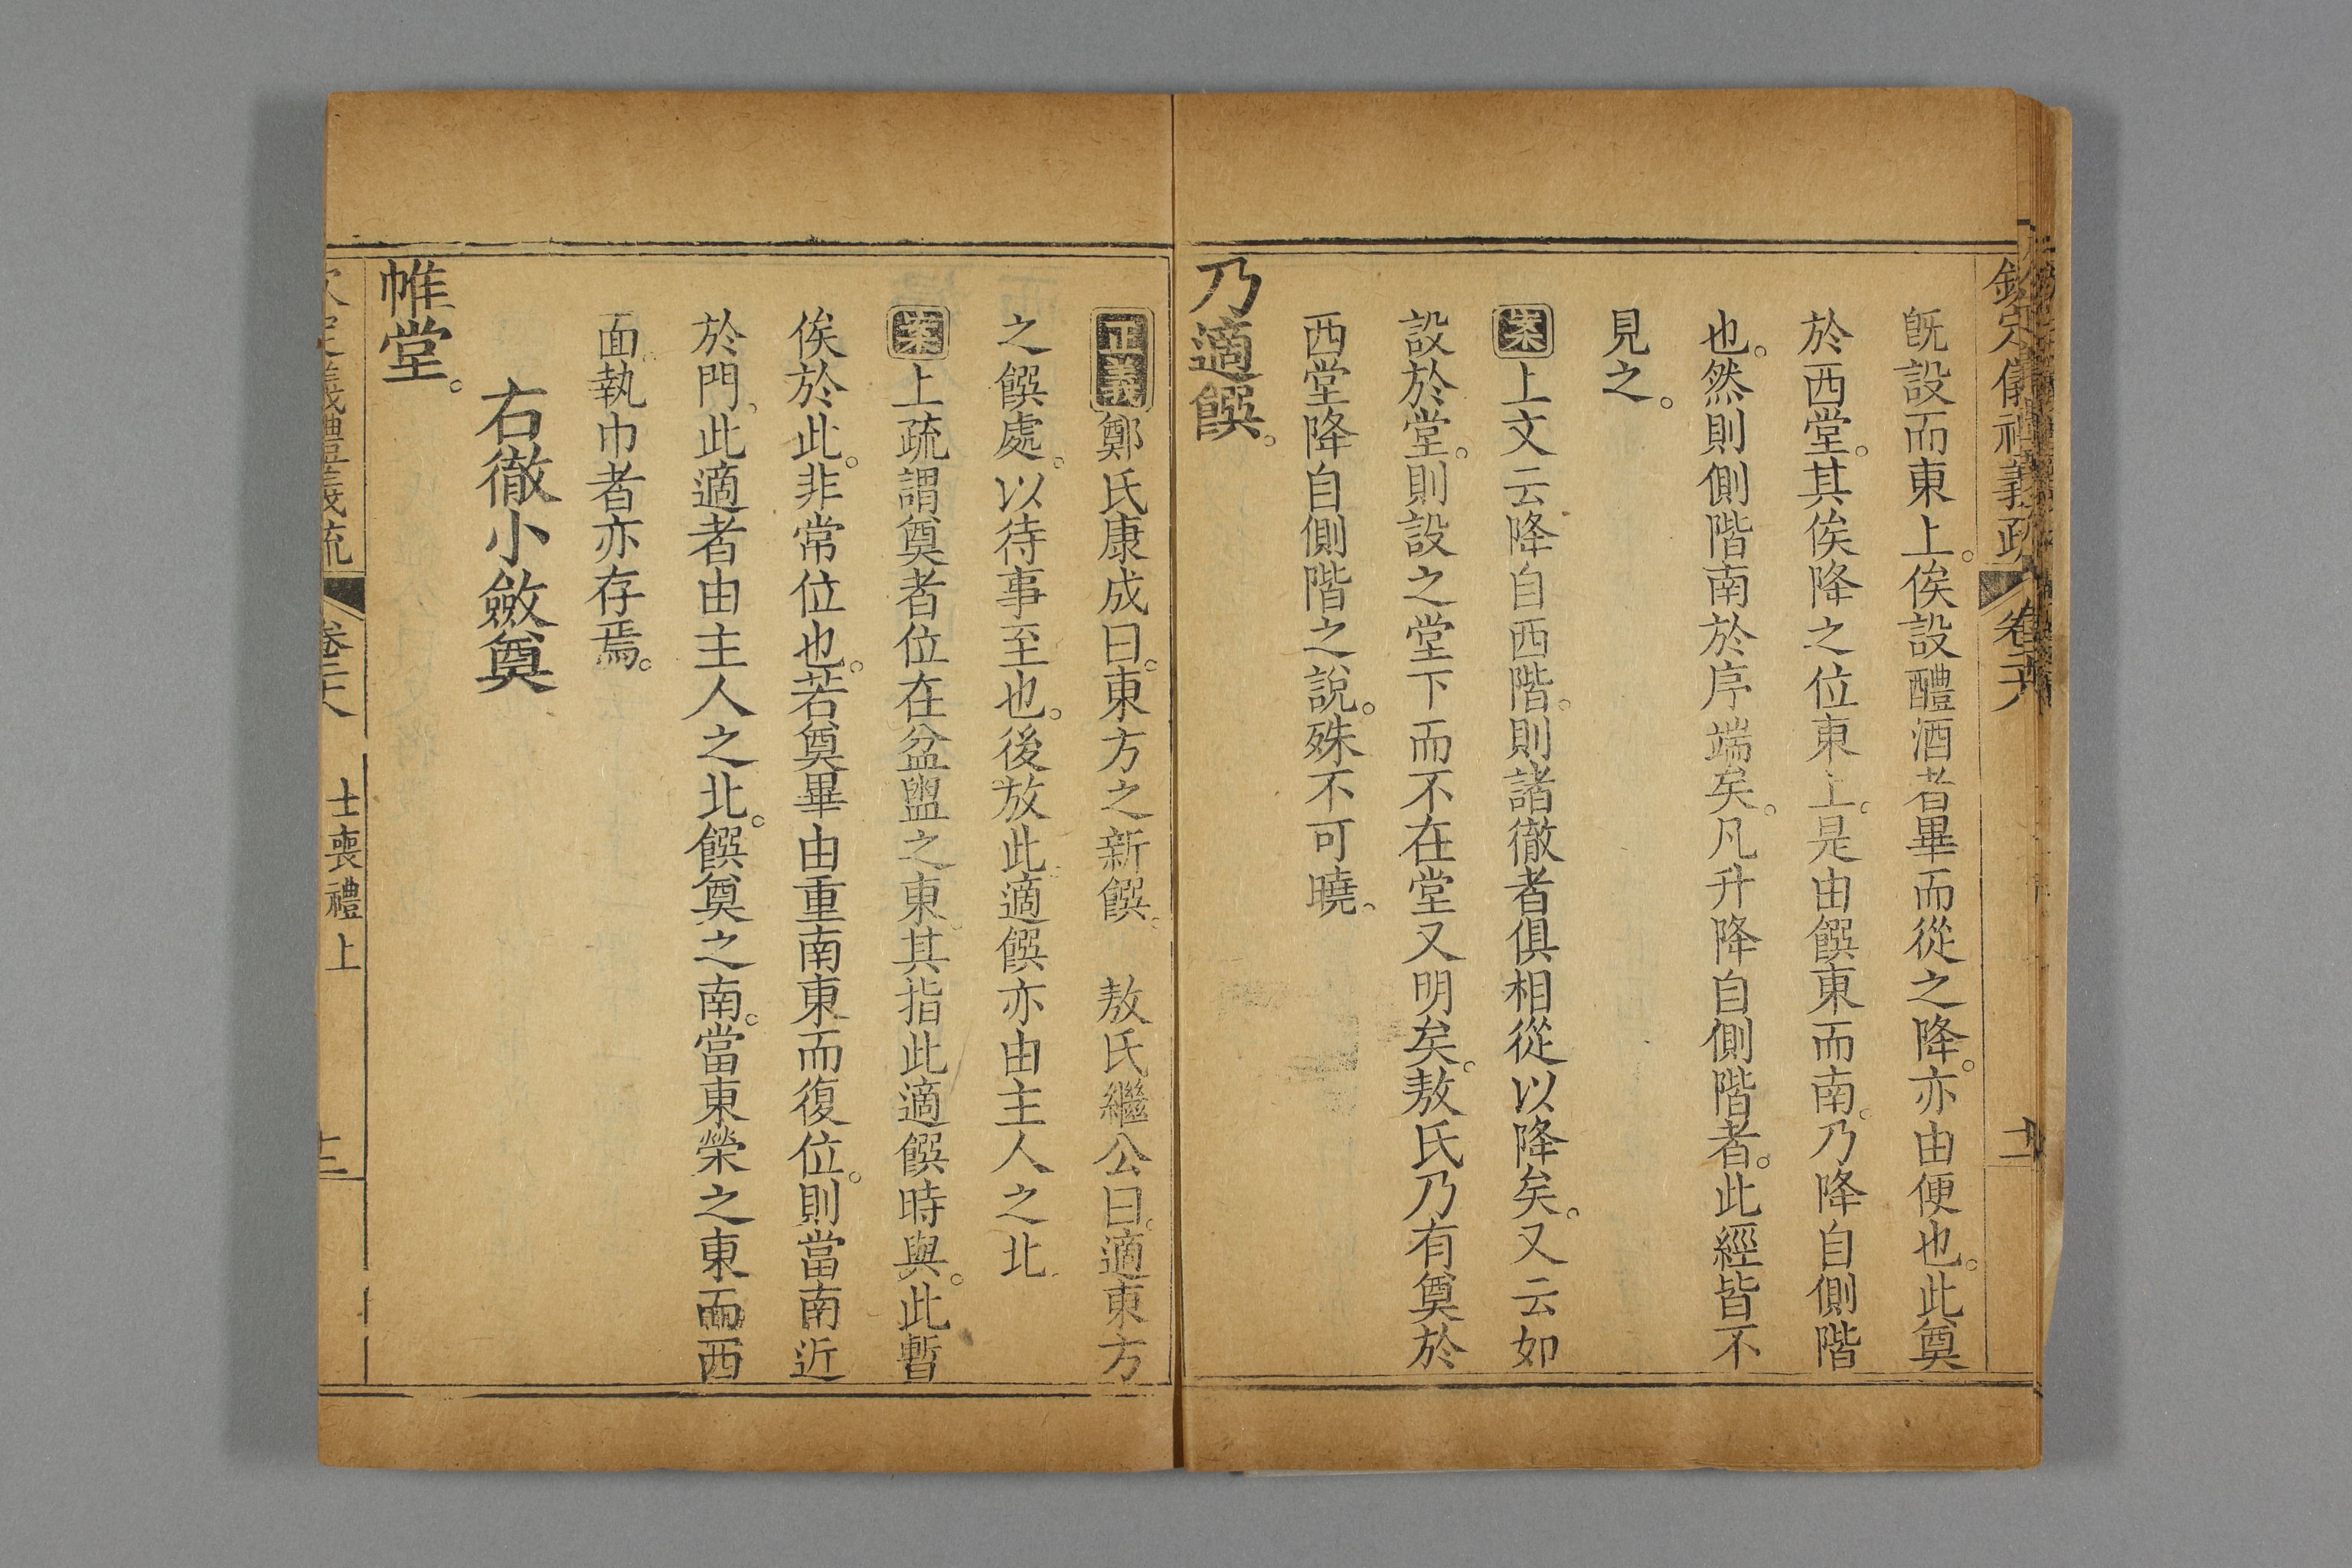 欽定儀禮義疏 卷六
旣設而東上。俟設醴酒者畢而從之降。亦由便也。此奠
於西堂。其俟降之位東上。是由饌東而南。乃降自側階
也。然則側階南於序端矣。凡升降自側階者。此經皆不
見之。
案上文云降自西階。則諸徹者俱相從以降矣。又云如
設於堂。則設之堂下而不在堂又明矣。敖氏乃有奠於
西堂降自側階之說。殊不可曉。
乃適饌。
正義鄭氏康成曰。東方之新饌。 敖氏繼公曰。適東方
之饌處。以待事至也。後放此。適饌亦由主人之北。
案上疏謂奠者位在盆盥之東。其指此適饌時與。此暫
俟於此。非常位也。若奠畢由重南東而復位。則當南近
於門。此適者由主人之北。饌奠之南。當東榮之東而西
面。執巾者亦存焉。
右徹小斂奠
帷堂。
欽定儀禮義疏 卷 士喪禮上